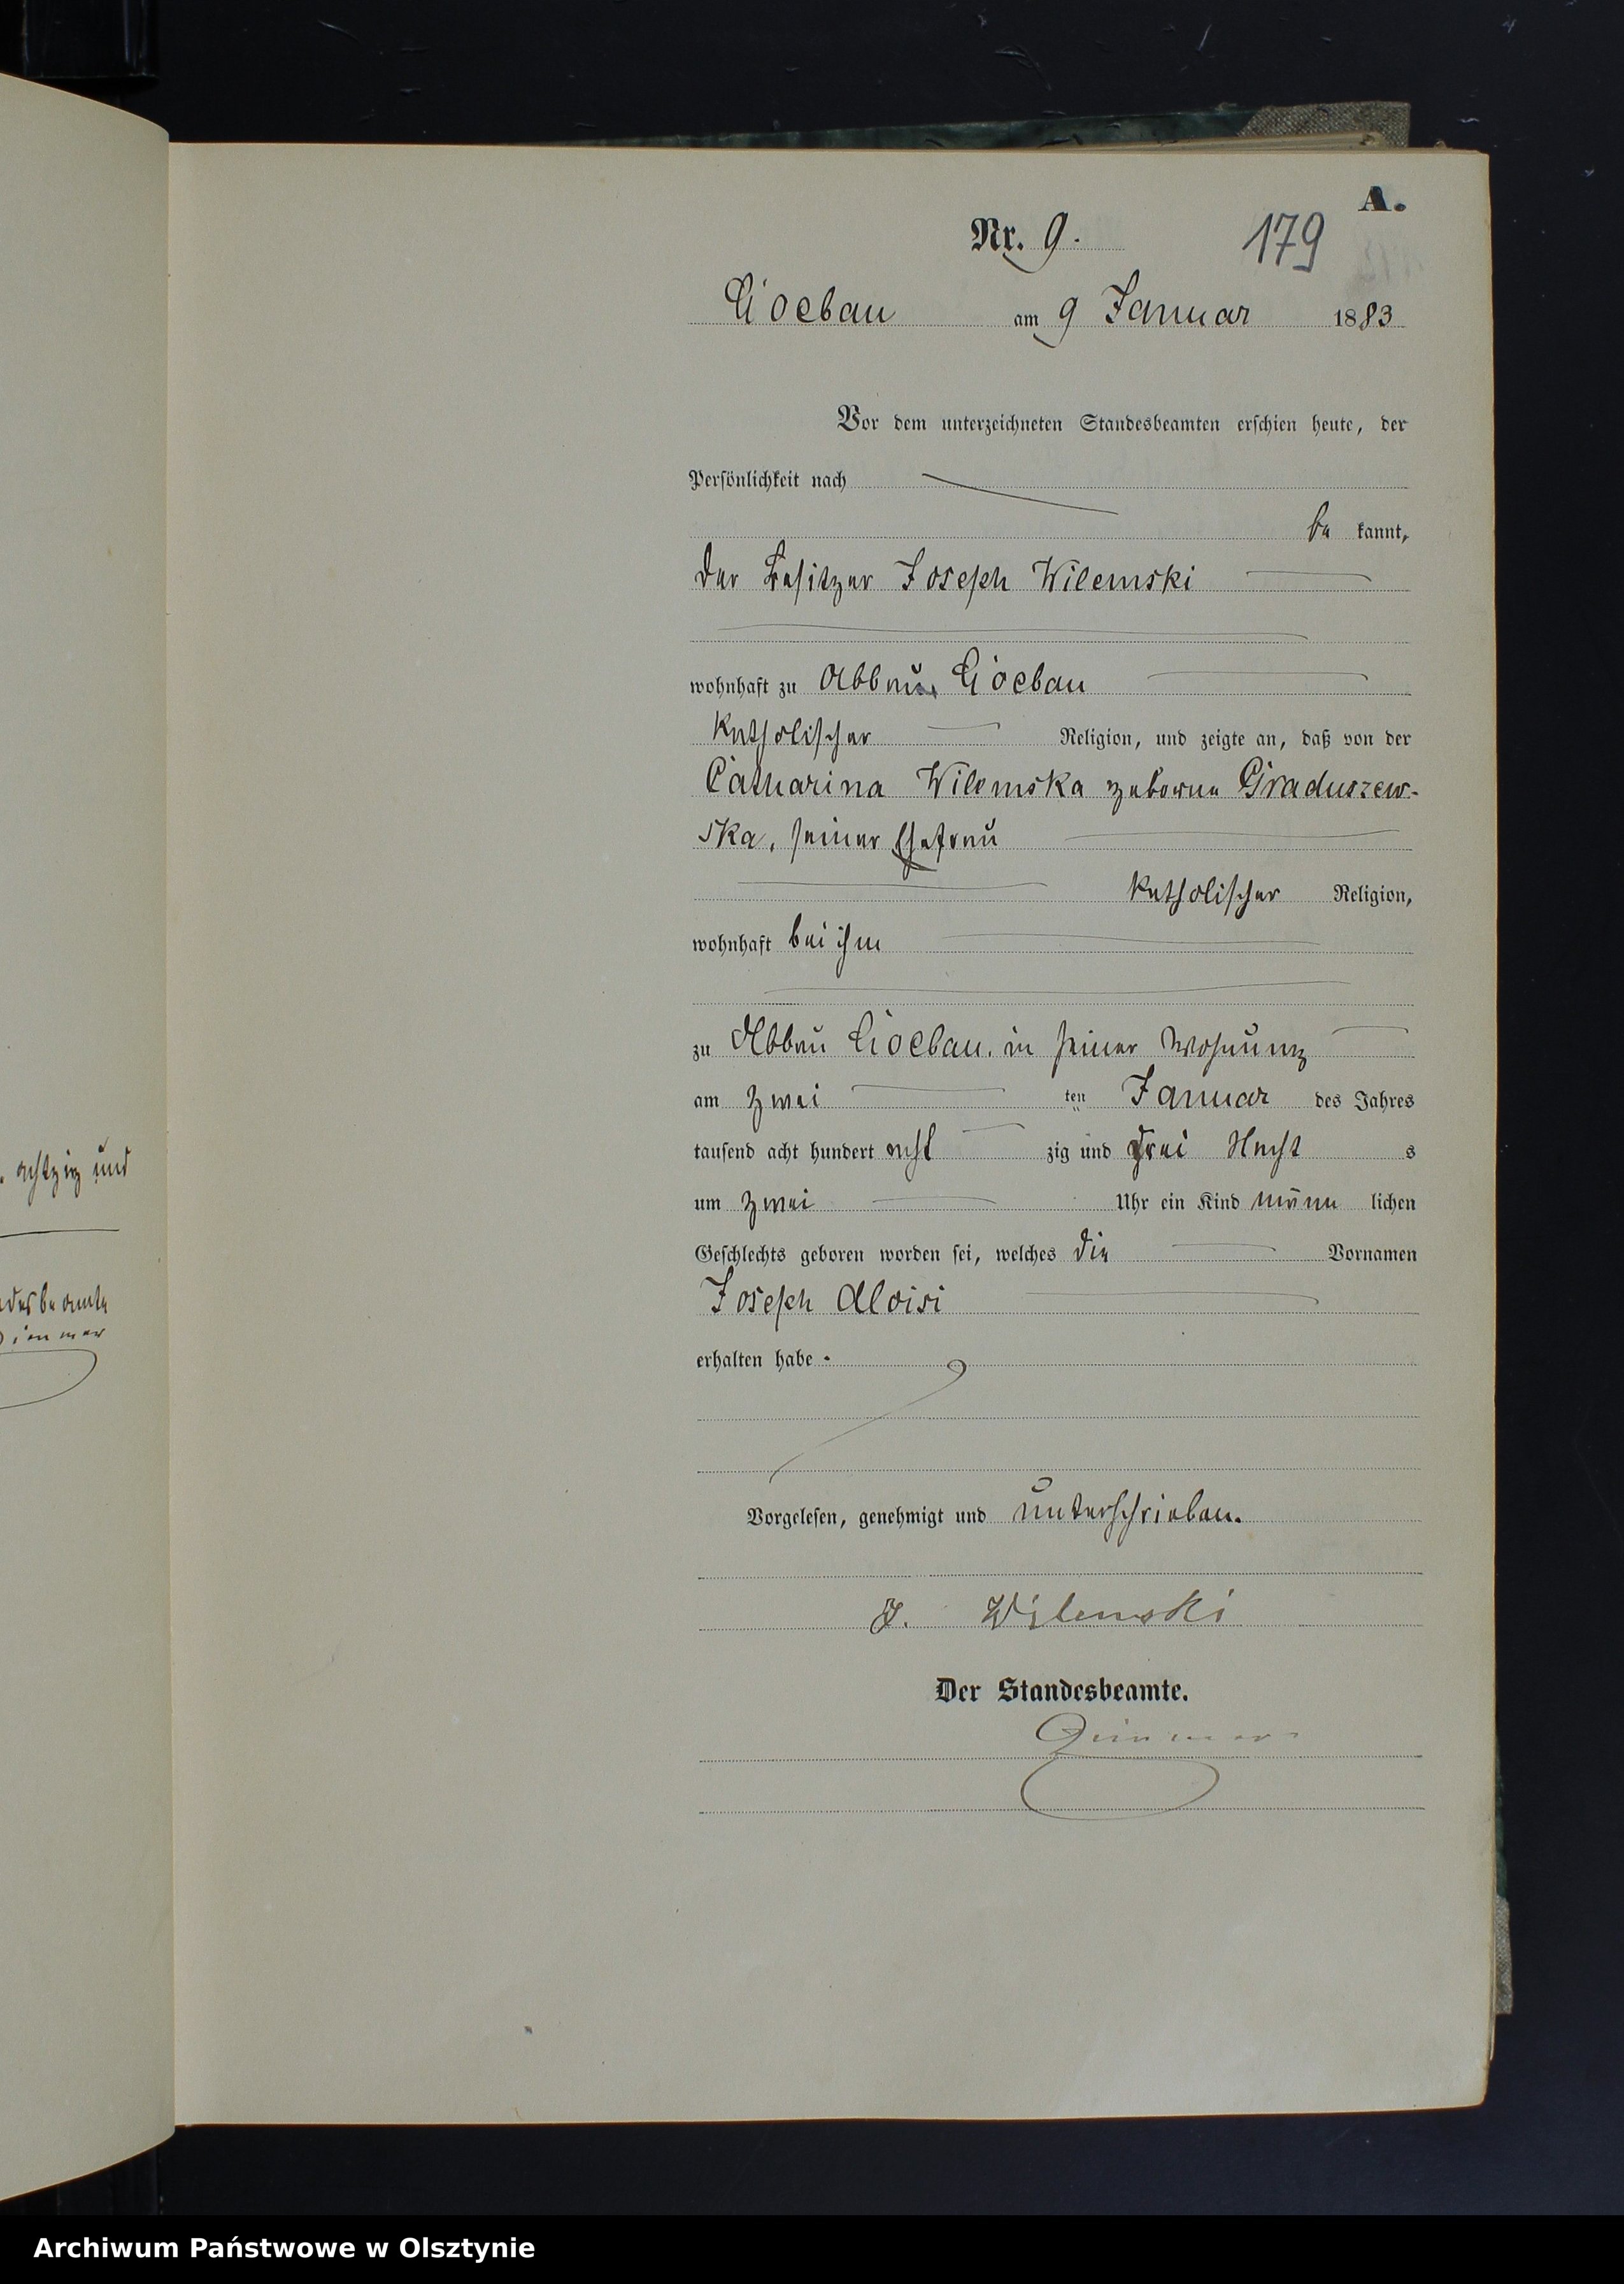 A.
Nr. 9. 179
Cioebau am 9 Januar 1883
Vor dem unterzeichneten Standesbeamten erschien heute, der
Persönlichkeit nach
be kannt,
der Besitzer Joseph Wilemski
wohnhaft zu Abbau Cioebau
katholischer Religion, und zeigte an, daß von der
Catharina Wilemska geborne Graduszew-
ska, seiner Ehefrau
katholischer Religion,
wohnhaft bei ihm
zu Abbau Cioebau in seiner Wohnung
am zwei ten Januar des Jahres
tausend acht hundert acht zig und drei Nacht s
um zwei Uhr ein Kind männ lichen
Geschlechts geboren worden sei, welches die Vornamen
Joseph Aloisi
erhalten habe.
Vorgelesen, genehmigt und unterschrieben.
J. Wilemski
Der Standesbeamte.
achtzig und
desbeamte
Archiwum Państwowe w Olsztynie